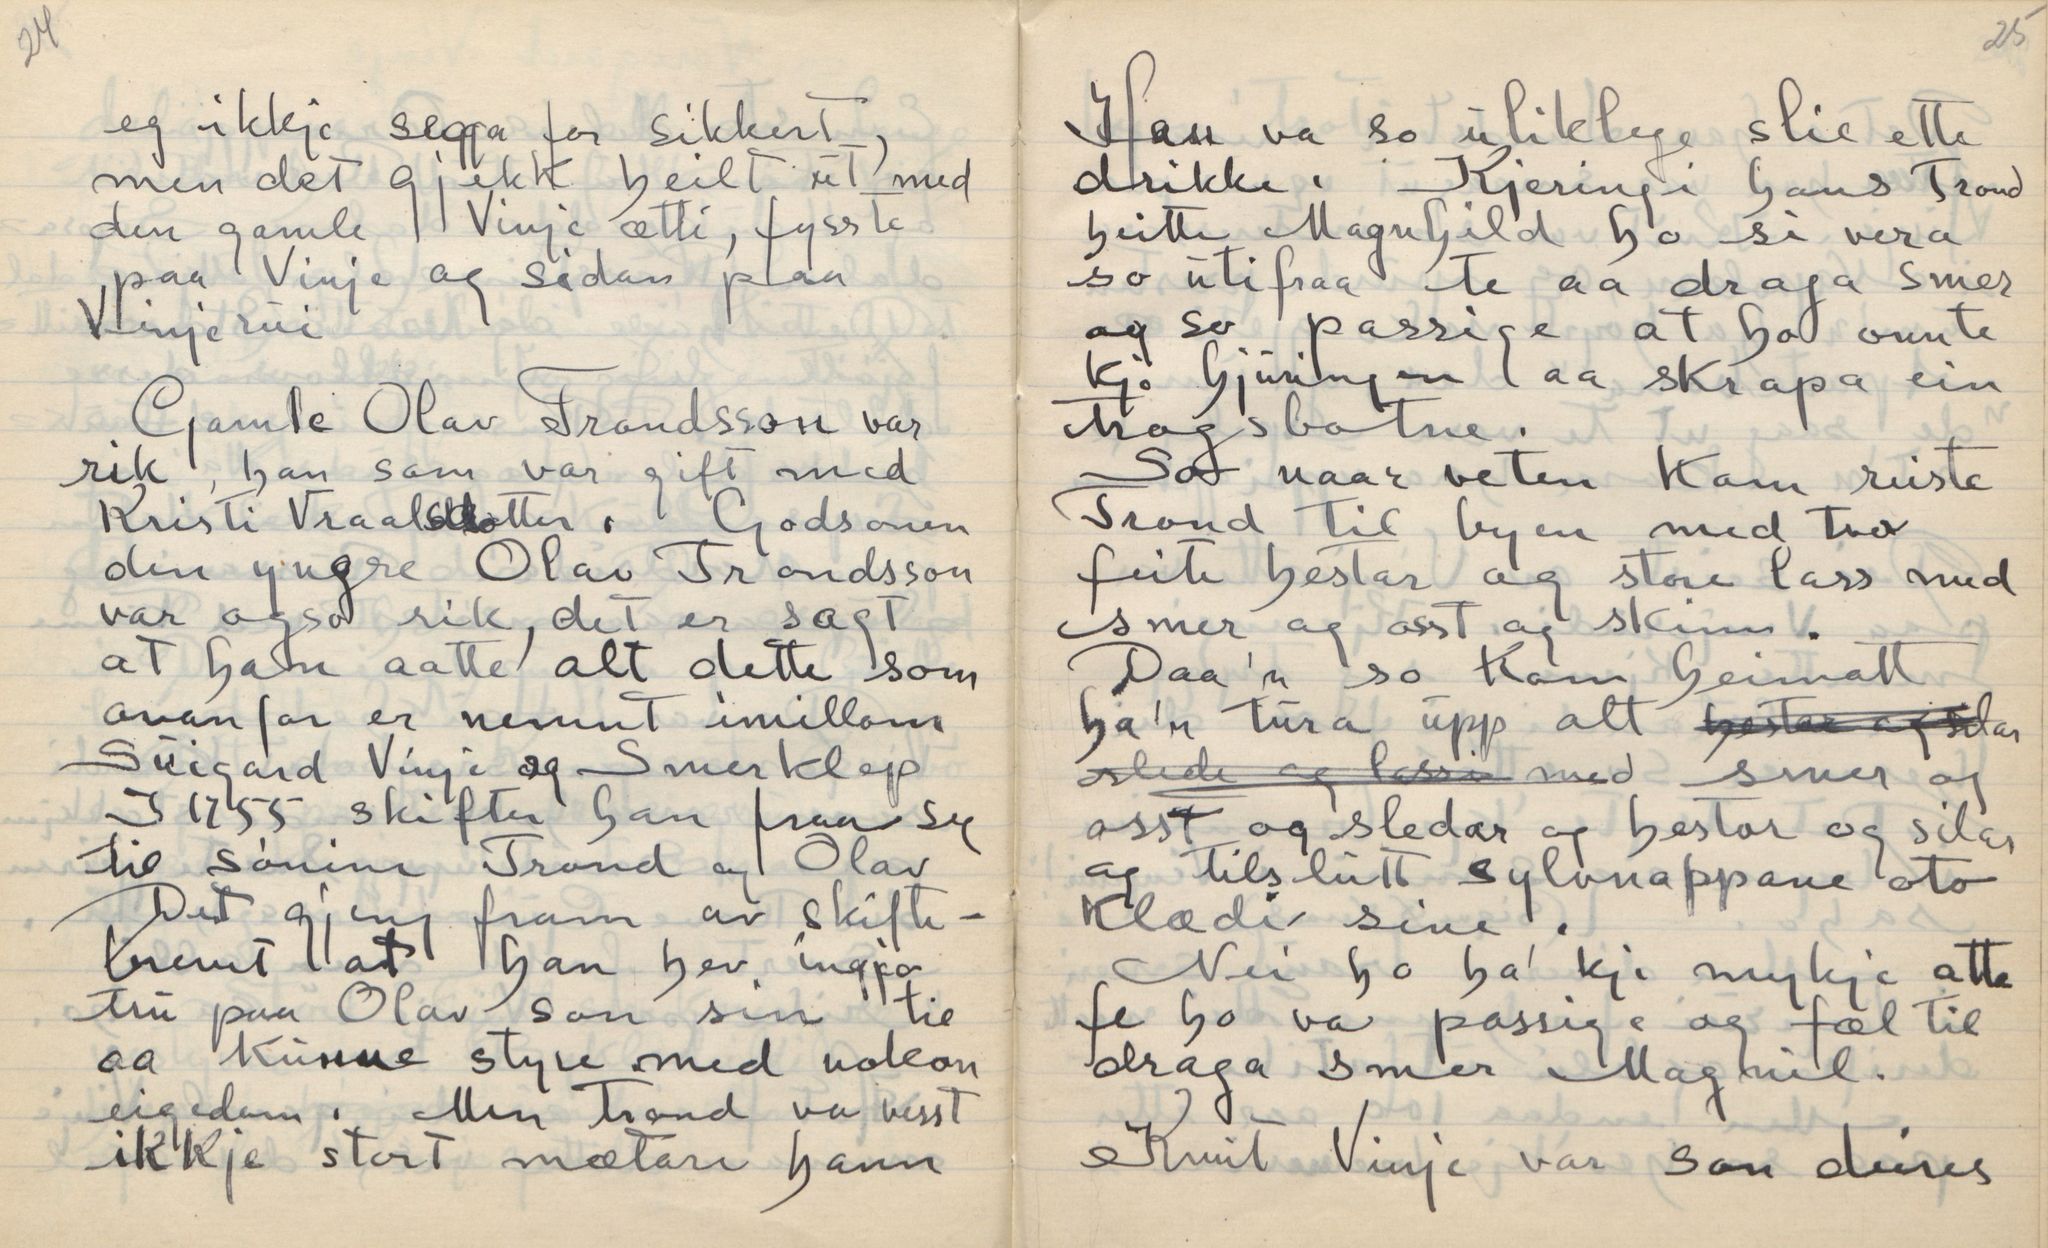 24
eg ikkje segja for sikkert,
men det gjekk heilt ut med
den gamle Vinje ætti, fysste
paa Vinje og sidan paa
Vinjerui
Gamle Olav Trondsson var
rik, han som var gift med
Kristi Vraalsdotter. Godsonen
den yngre Olav Trondsson
var ogso rik, det er sagt
at han aatte alt dette som
ovanfor er nemnt imillom
Suigard Vinje og Smerklep
I 1755 skifter han fraa seg
til sónine Trond og Olav
Det gjeng fram av skifte-
brevet at han hev ingjo
tru paa Olav son sin til
aa kunne styre med nokon
eigedom. Men Trond va visst
ikkje stort mætare hann
25
Han va so uliklege slic ette
drikke. Kjeringi hans Trond
heitte Magnhild ho si vera
so utifraa te aa draga smer
og so passige at ho onnte
kje hjuringen aa skrapa ein
trogsbotne.
So naar veten kom reiste
Trond til byen med tvo
feite hestar og store lass med
smer og osst og skinn.
Daa'n so kom heimatt
ha'n tura upp alt hestar og silar
slede og lasse med smer og
osst og sledar og hestar og silar
og tilslutt sylvnappane oto
klædi sine.
Nei ho ha' kje mykje atte
fe ho va passige og fæl til
draga smer Magnil.
Knut Vinje var son deires